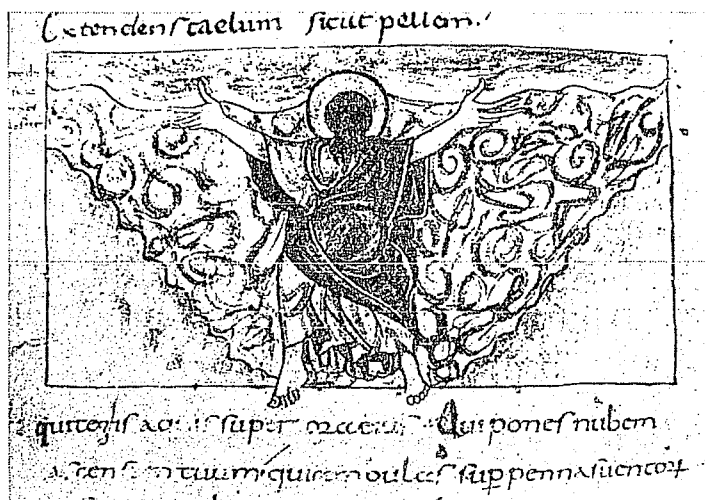 Extendens caelum sicut pellem.
qui tegis aquis super eius Qui pones nubem
ascensum tuum qui ambulas sup pennas uentorꝝ